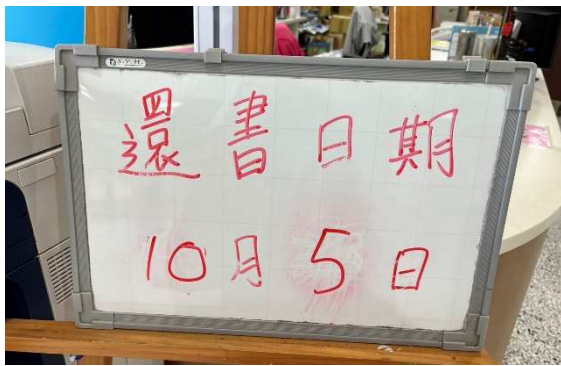 還書日期
10月5日